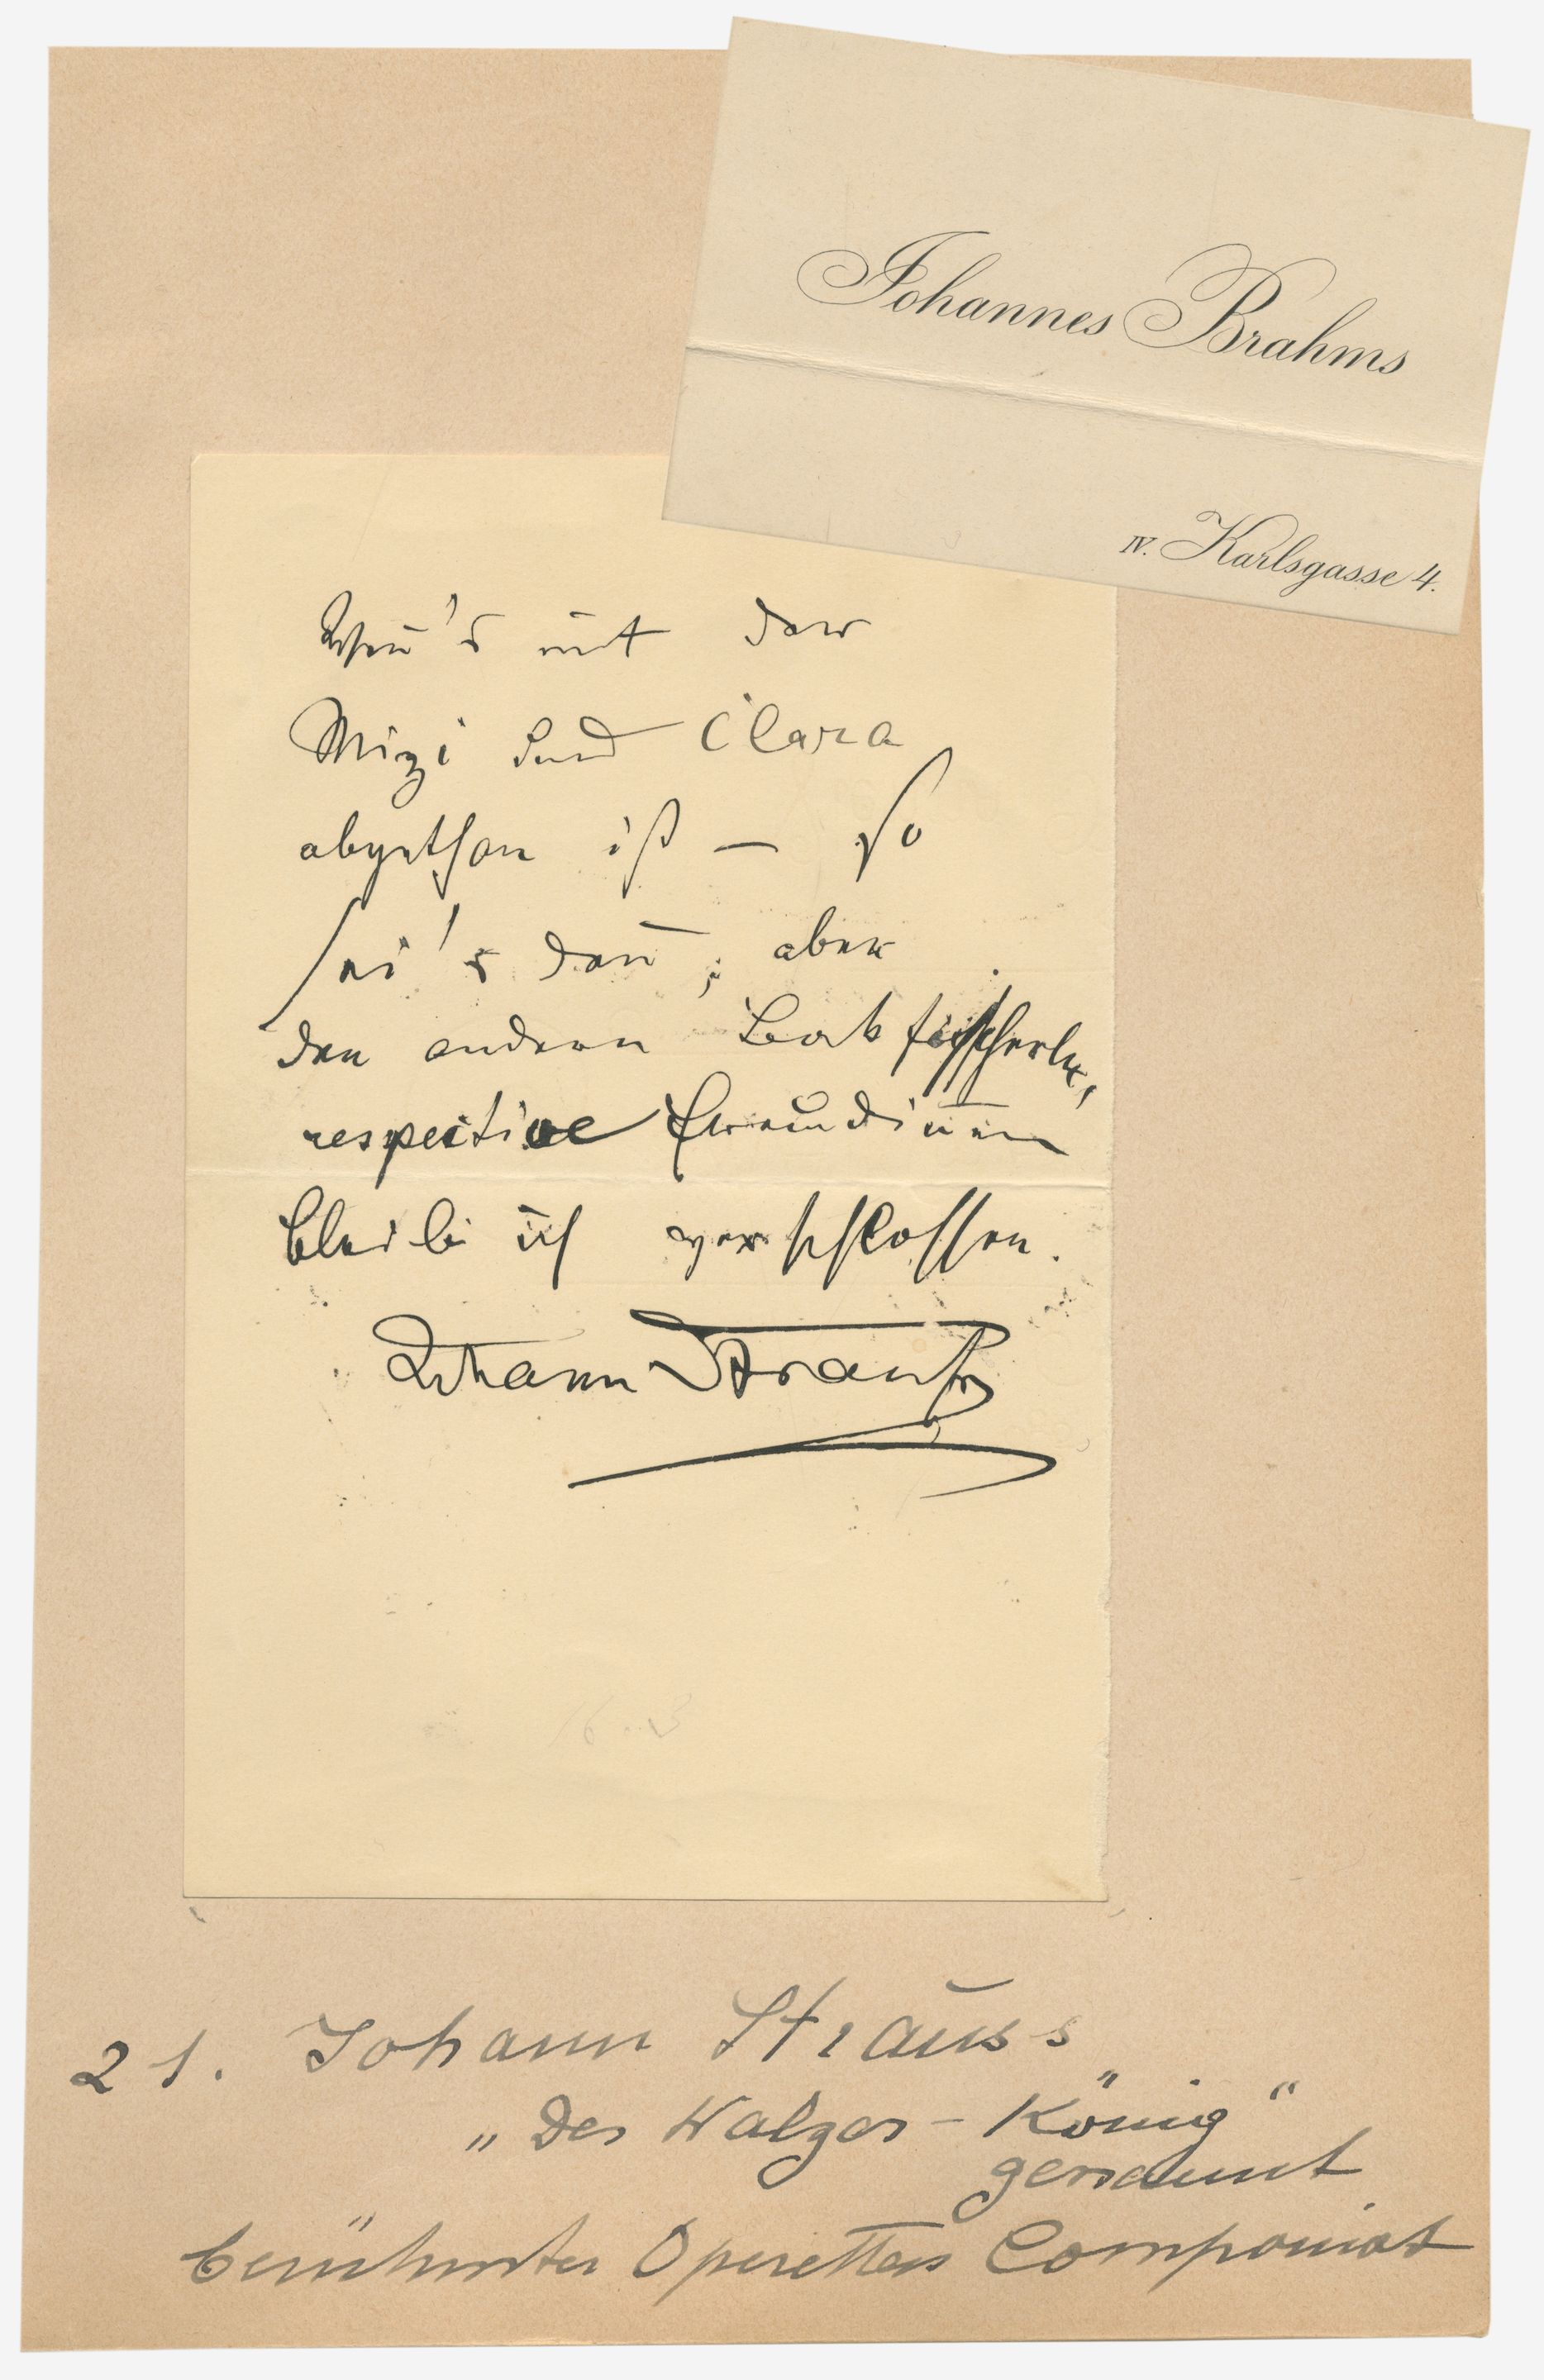 Johannes Brahms
IV. Karlsgasse 4.
Weñ's mit der
Mizi und Clara
abgethan ist – so
sei's dañ; aber
den andern Backfischerln,
respective Freundiñen
bleibe ich verschlossen.
Johann Strauss
21. Johann Strauss
„Der Walzer-König“
genannt
berühmter Operetten Componist